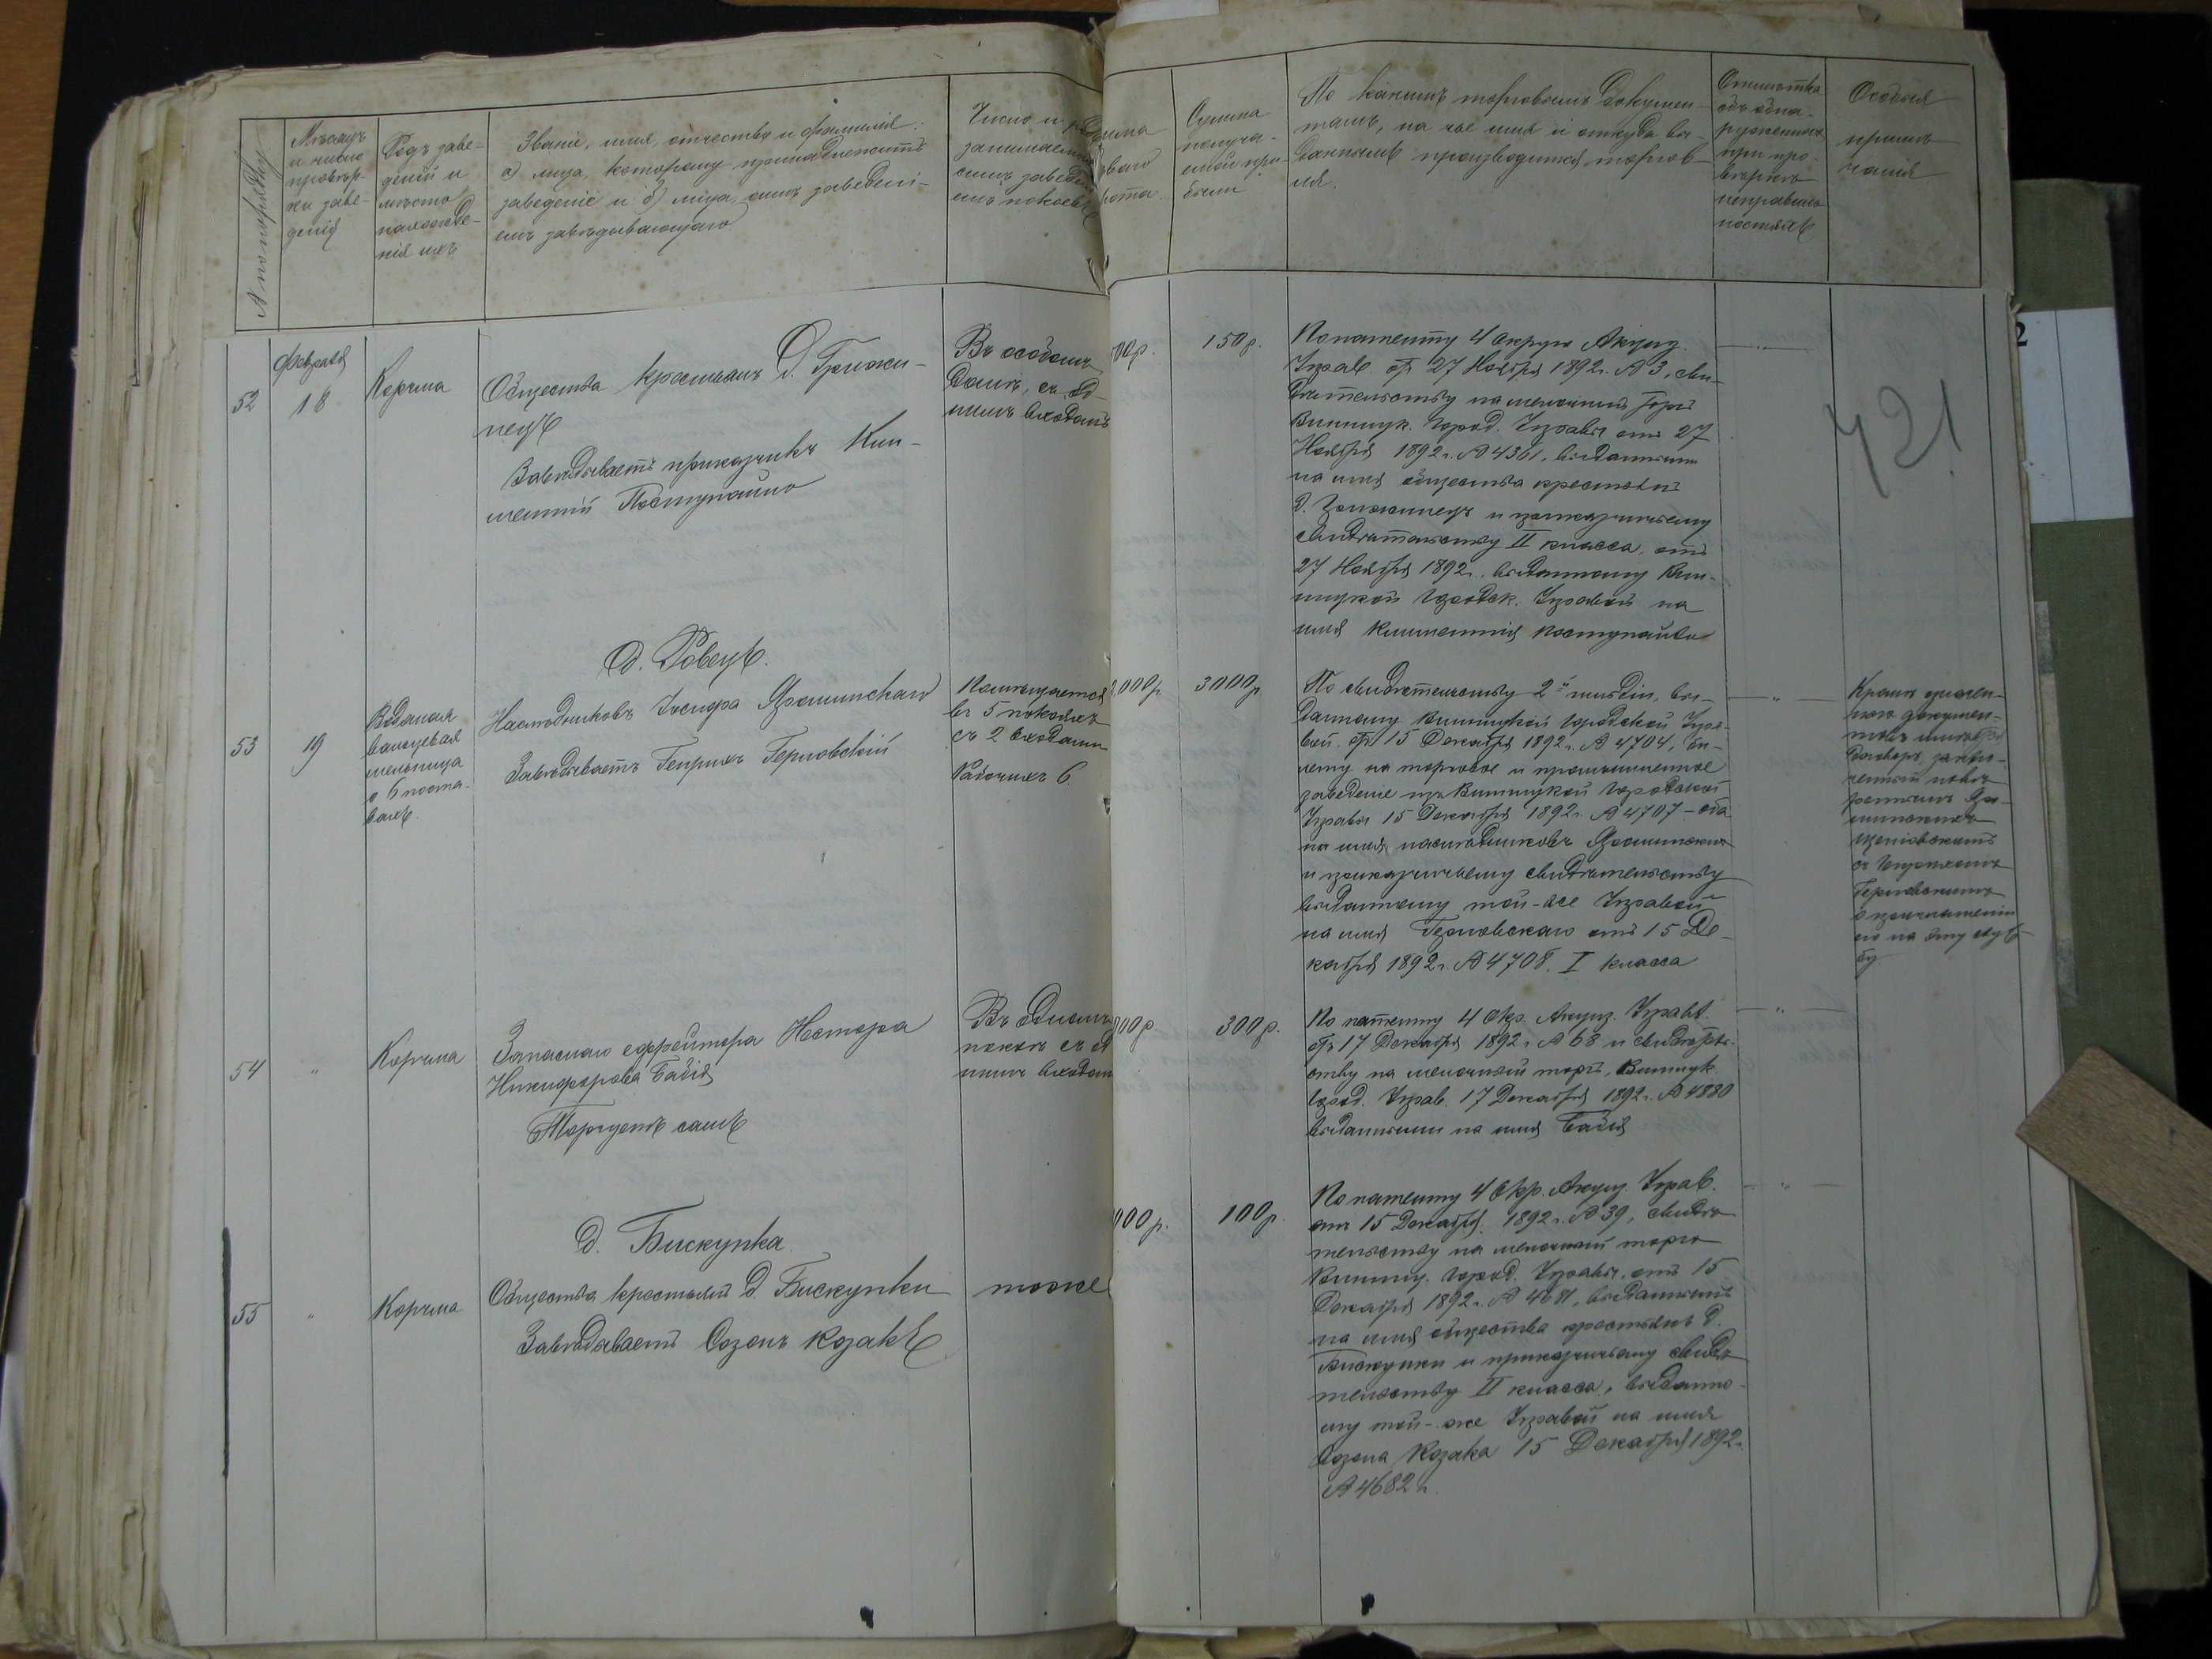 № по порядку
Мѣсяцъ
и число
провѣр-
ки заве-
денія
Родъ заве-
деній и
мѣсто
нахожде-
нія ихъ
Званіе, имя, отчество и фамилія:
а) лица, которому принадлежитъ
заведеніе и б) лица, симъ заведені-
емъ завѣдывающаго
Число и
занимаемы
симъ заведен
емъ покоевъ
Сумма
получа-
емой при-
были
По какимъ торговымъ докумен-
тамъ, на чье имя и откуда вы-
даннымъ производится торгов-
ля.
Отмѣтка
объ обна-
руженныхъ
при про-
вѣркѣ
неправиль
ностяхъ
Особыя
примѣ
чанія
52
Февраля
18
Корчма
Общества крестьянъ д.
нецъ
Завѣдываетъ приказчикъ Кли-
ментій Поступайло
Въ особомъ
домѣ, съ од-
нимъ входомъ
00р.
150р.
По патенту 4 округа Акциз.
Управ. отъ 27 Ноября 1892г. № 3, сви-
дѣтельству на мелочный торгъ
Винницк. Город. Управы отъ 27
Ноября 1892г. № 4361, выданнымъ
на имя общества крестьянъ
д. и приказчичьему
свидѣтельству II класса, отъ
27 Ноября 1892г. выданному Вин-
ницкой Городск. Управой на
имя Климентія Поступайло
421
д. Ровецъ.
53
19
Водяная
вальцевая
мельница
о 6 поста-
вахъ.
Наслѣдниковъ Іосифа Ярошинскаго
Завѣдываетъ Генрихъ Герловскій
Помѣщается
въ 5 покояхъ
съ 2 входами
Рабочихъ 6.
000р.
3000р.
По свидѣтельству 2й гильдіи, вы-
данному Винницкой Городской Упра-
вой отъ 15 Декабря 1892г. № 4704, би-
лету на торговое и промышленное
заведеніе изъ Винницкой Городской
Управы 15 Декабря 1892г. № 4707 - оба
на имя наслѣдниковъ Ярошинскихъ
и приказчичьему свидѣтельству
выданному той-же Управой
на имя Герловскаго отъ 15 Де-
кабря 1892г. № 4708. I класса
"
Кромѣ означен-
ныхъ докумен-
товъ имѣется
договоръ, заклю-
ченный повѣ-
реннымъ Яро-
шинскихъ
съ Генрихомъ
Герловскимъ
о приглашеніи
его на эту служ-
бу
54
"
Корчма
Запаснаго ефрейтора Нестора
Никифорова Бабія
Торгуетъ самъ
Въ одномъ
покоѣ съ од
нимъ входом
00р
300р.
По патенту 4 Окр. Акциз. Управл.
отъ 17 Декабря 1892г. № 68 и свидѣтель-
ству на мелочный торгъ, Винницк.
Город. Управ. 17 Декабря 1892г. № 4880
выданнымъ на имя Бабія
"
д. Бискупка.
55
"
Корчма
Общества крестьянъ д. Бискупки
Завѣдываетъ Созонъ Козакъ
тоже
000р.
100р.
По патенту 4 Окр. Акциз. Управ.
отъ 15 Декабря 1892г. № 39, свидѣ
тельству на мелочный торгъ
Винниц. Город. Управы, отъ 15
Декабря 1892г. № 4681, выданнымъ
на имя общества крестьянъ д.
Бискупки и приказчичьему свидѣ
тельству II класса, выданно-
му той-же Управой на имя
Созона Козака 15 Декабря 1892г.
№ 4682г.
"